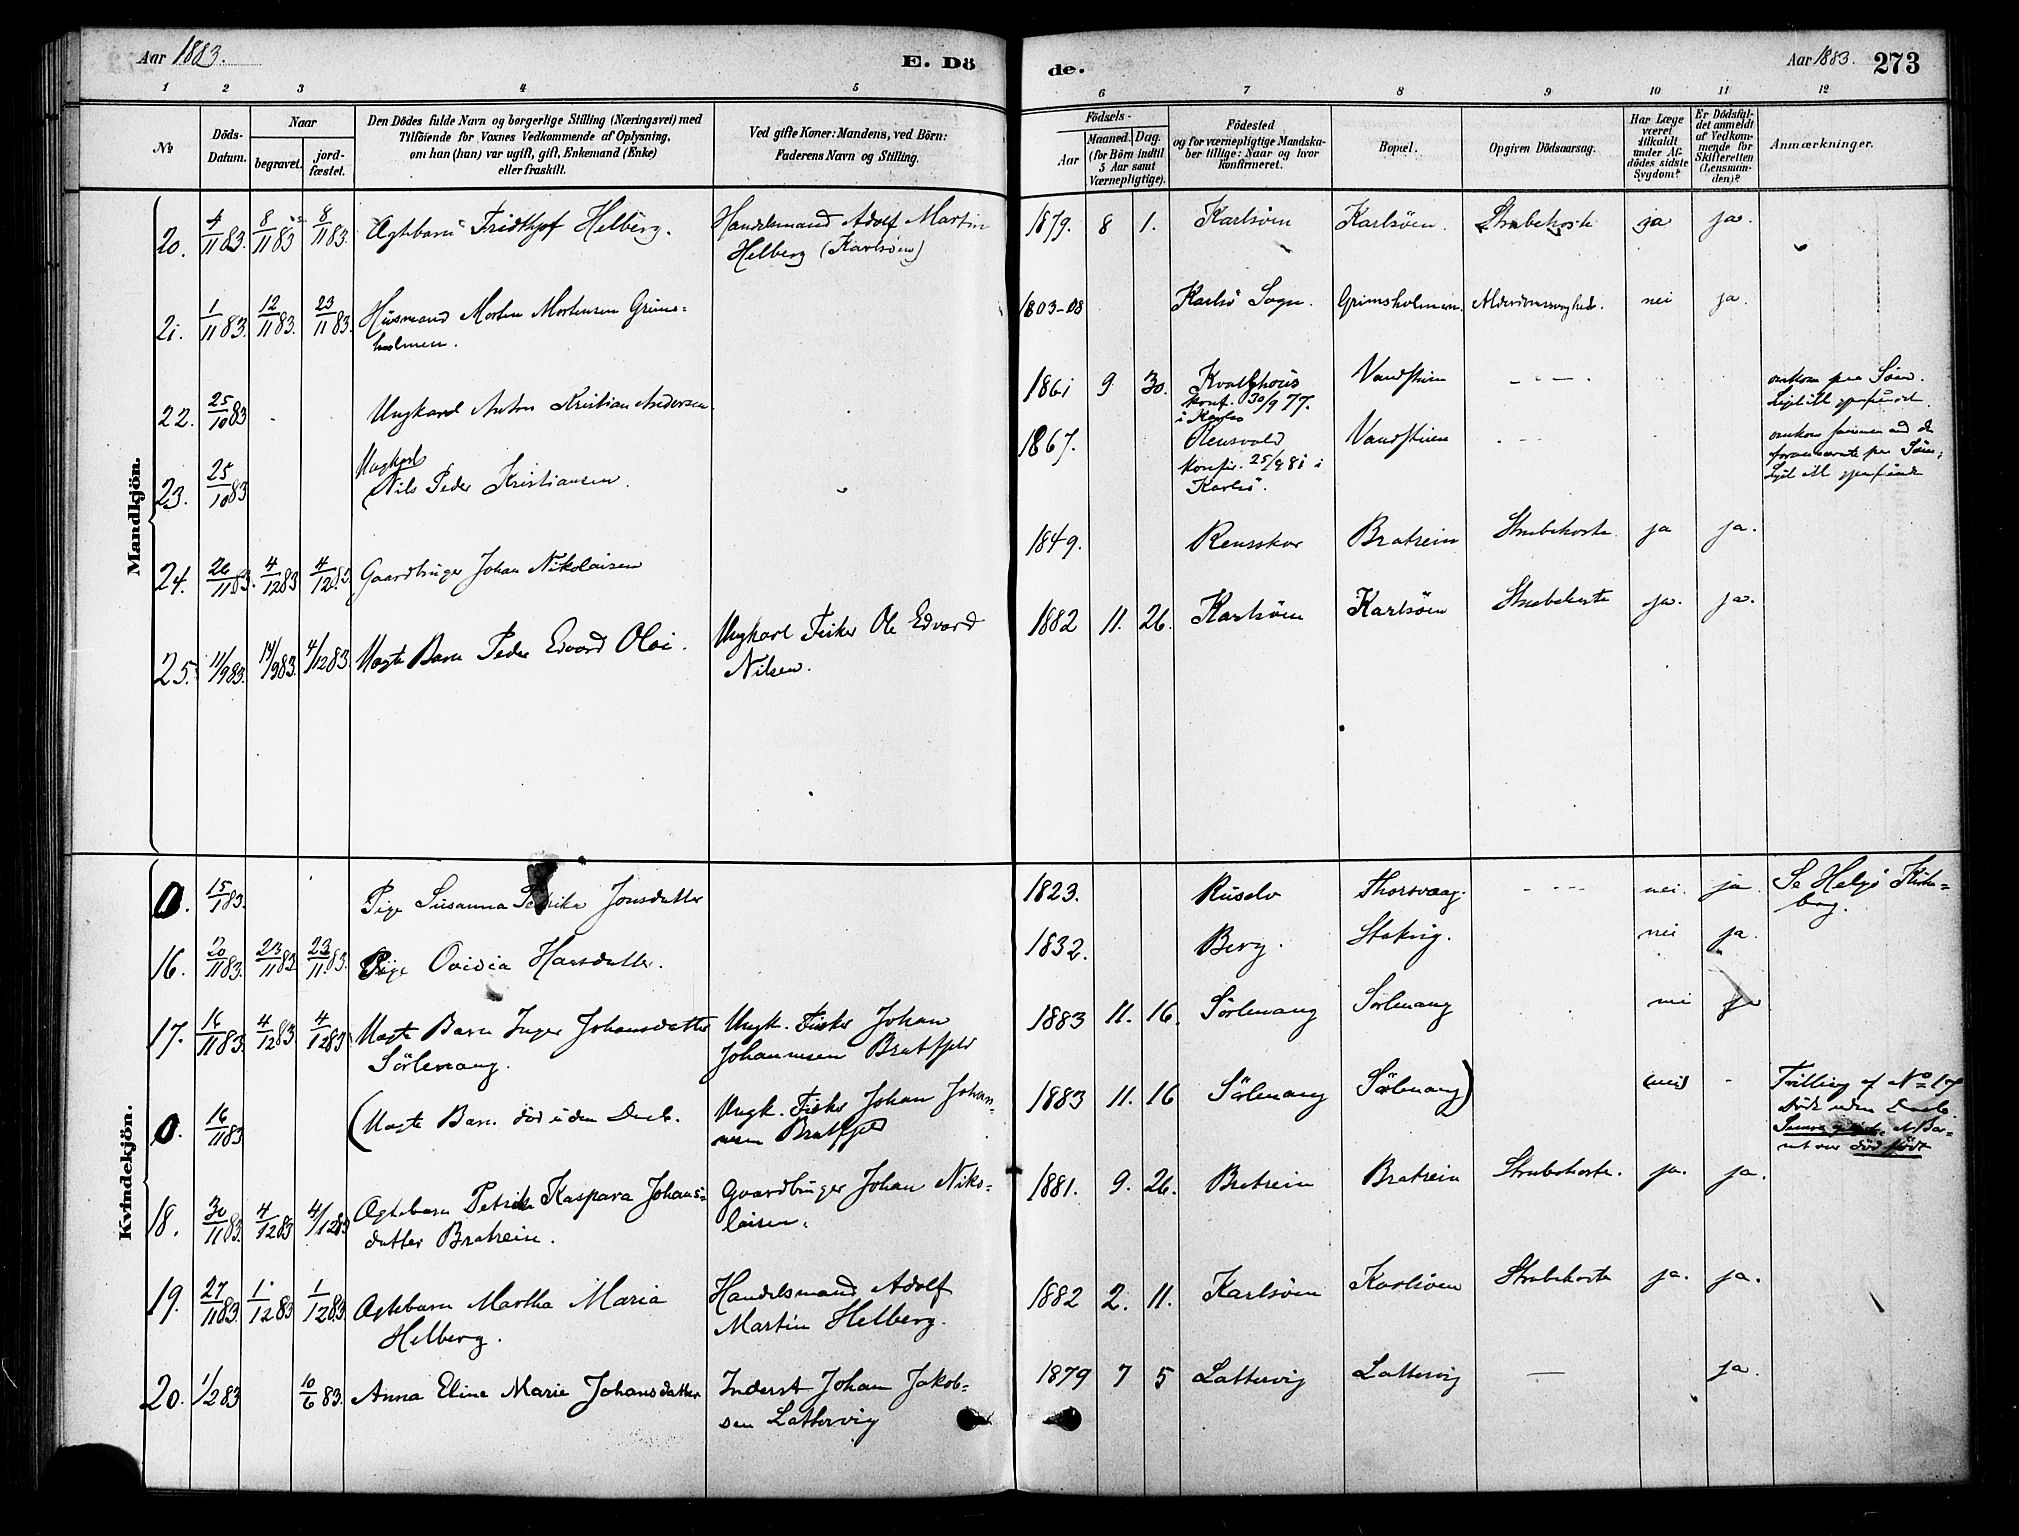 Aar 1883.
E. Dö
de.
Aar 1883. 273
1 2 3 4 5
6 7 8 9 10 11 12
№
Döds-
Datum.
Naar
begravet.
jord-
fæstet.
Den Dödes fulde Navn og borgerlige Stilling (Næringsvei) med
Tilföiende for Voxnes Vedkommende af Oplysning,
om han (hun) var ugift, gift, Enkemand (Enke)
eller fraskilt.
Ved gifte Koner: Mandens, ved Börn:
Faderens Navn og Stilling.
Födsels-
Aar
Maaned. Dag.
(for Börn indtil
5 Aar samt
Værnepligtige).
Födested
og for værnepligtige Mandska-
ber tillige: Naar og hvor
konfirmeret.
Bopæl.
Opgiven Dödsaarsag.
Har Læge
været
tilkaldt
under Af-
dödes sidste
Sygdom?
Er Dödsfal-
det anmeldt
af Vedkom-
mende for
Skifteretten
(Lensman-
den)?
Anmærkninger.
Mandkjön.
20. 4/11 83. 8/11 83 8/11 83. Ægtebarn Fridthjof Helberg. Handelsmand Adolf Martin
Helberg (Karlsöen)
1879. 8 1. Karlsöen Karlsöen. Strubehoste ja ja.
21. 1/11 83. 12/11 83. 23/11 83. Husmand Morten Mortensen Grims-
holmen.
1803-08 Karlsö Sogn. Grimsholmen. nei ja.
22. 25/10 83 Ungkarl Anton Kristian Andersen.
1861 9 30. Kvalshous Vandstuen - - - . omkom paa Söen.
Konf. 30/9 77. Liget ill opfundet.
i Karlsö
23. 25/10 83 Ungkarl
Nils Peder Kristiansen.
1867. Vandstuen - - - omkom sammen med den
konfir. 25/9 81 i paa Söen;
Karlsö. Liget ill
24. 26/11 83. 4/12 83 4/12 83 Gaardbruger Johan Nikolaisen
1849. Rensskar Bratrein Strubehoste. ja ja.
25. 11/9 83. 14/9 83. 4/12 83. Uægte Barn Peder Edvard Olai. Ungkarl Fisker Ole Edvard
Nilsen.
1882 11. 26. Karlsöen Karlsöen Strubehoste ja. ja.
Kvindekjön.
0. 15/1 83. Pige Susanna Petrika Jonsdatter
1823. Ruselv Thorsvaag. - - - nei. ja. Se Helgö Kirke-
bog.
16. 20/11 83 23/11 83. 23/11 83. Pige Ovidia Hansdatter.
1832. Berg. Stakvig. nei ja.
17. 16/11 83. 4/12 83. 4/12 83 Uægte Barn Inger Johansdatter Ungk. Fisker Johan
Sörlenang. Johannesen Bratfjeld
1883 11. 16. Sörlenang Sörlenang nei ja
0. 16/11 83 (Uægte Barn. död uden Daab. Ungk. Fisker Johan Johan-
nesen Bratfjeld
1883 11. 16 Sörlenang Sörlenang) (nei) - Tvilling af No 17
Död uden Daab.
at Bar-
net var dödfödt
18. 30/11 83. 4/12 83 4/12 83 Ægtebarn Petrika Kaspara Johans- Gaardbruger Johan Niko-
datter Bratrein. laisen.
1881. 9. 26. Bratrein Bratrein Strubehoste. ja. ja.
19. 27/11 83. 1/12 83 1/12 83. Ægtebarn Martha Maria Handelsmand Adolf
Helberg. Martin Helberg.
1882 2. 11. Karlsöen Karlsöen Strubehoste ja. ja.
20. 1/2 83 10/6 83. Anna Eline Marie Johansdatter Inderst Johan Jakob-
sen Lattervig
1879 7 5 Lattervig Lattervig — ja.